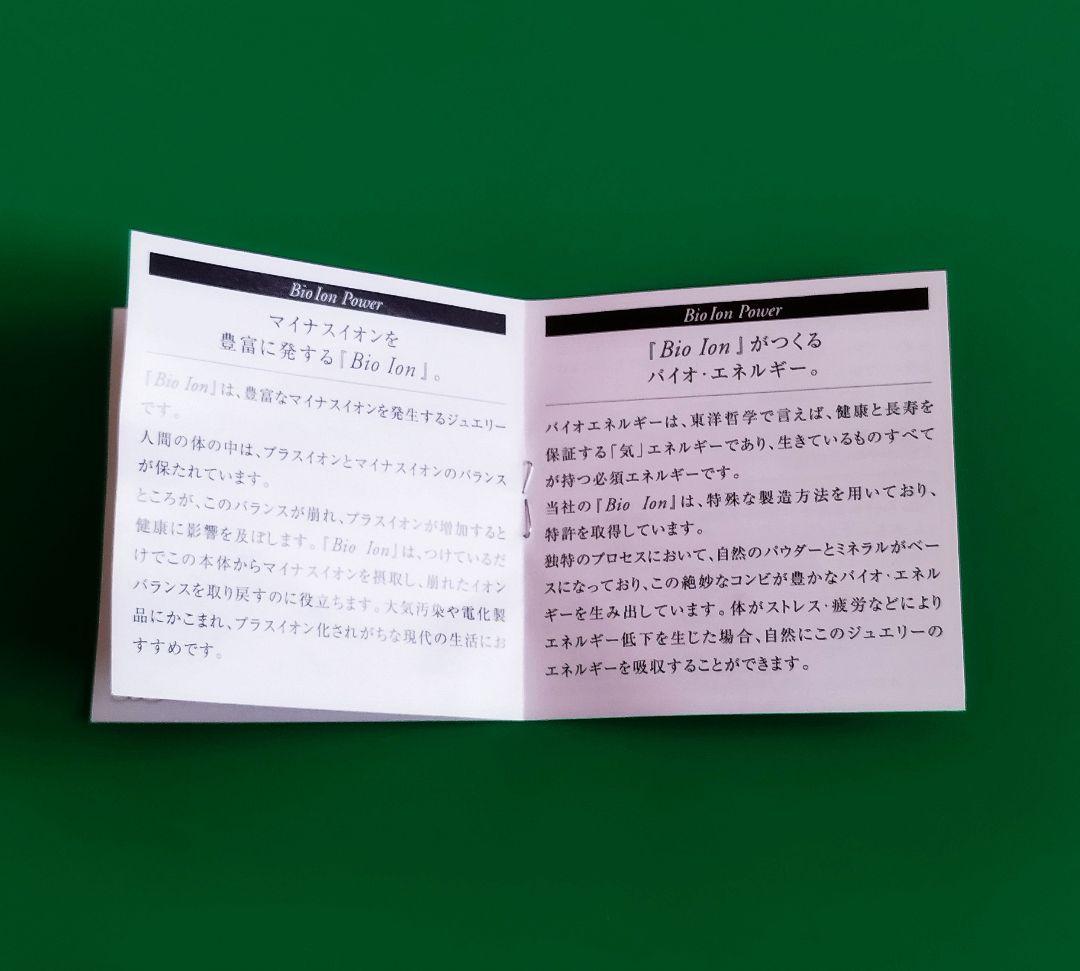 Bio Ion Power
マイナスイオンを
豊富に発する『Bio Ion』。
『Bio Ion』は、豊富なマイナスイオンを発生するジュエリー
です。
人間の体の中は、プラスイオンとマイナスイオンのバランス
が保たれています。
ところが、このバランスが崩れ、プラスイオンが増加すると
健康に影響を及ぼします。『Bio Ion』は、つけているだ
けでこの本体からマイナスイオンを摂取し、崩れたイオン
バランスを取り戻すのに役立ちます。大気汚染や電化製
品にかこまれ、プラスイオン化されがちな現代の生活にお
すすめです。
Bio Ion Power
『Bio Ion』がつくる
バイオ・エネルギー。
バイオエネルギーは、東洋哲学で言えば、健康と長寿を
保証する「気」エネルギーであり、生きているものすべて
が持つ必須エネルギーです。
当社の『Bio Ion』は、特殊な製造方法を用いており、
特許を取得しています。
独特のプロセスにおいて、自然のパウダーとミネラルがベー
スになっており、この絶妙なコンビが豊かなバイオ・エネル
ギーを生み出しています。体がストレス・疲労などにより
エネルギー低下を生じた場合、自然にこのジュエリーの
エネルギーを吸収することができます。